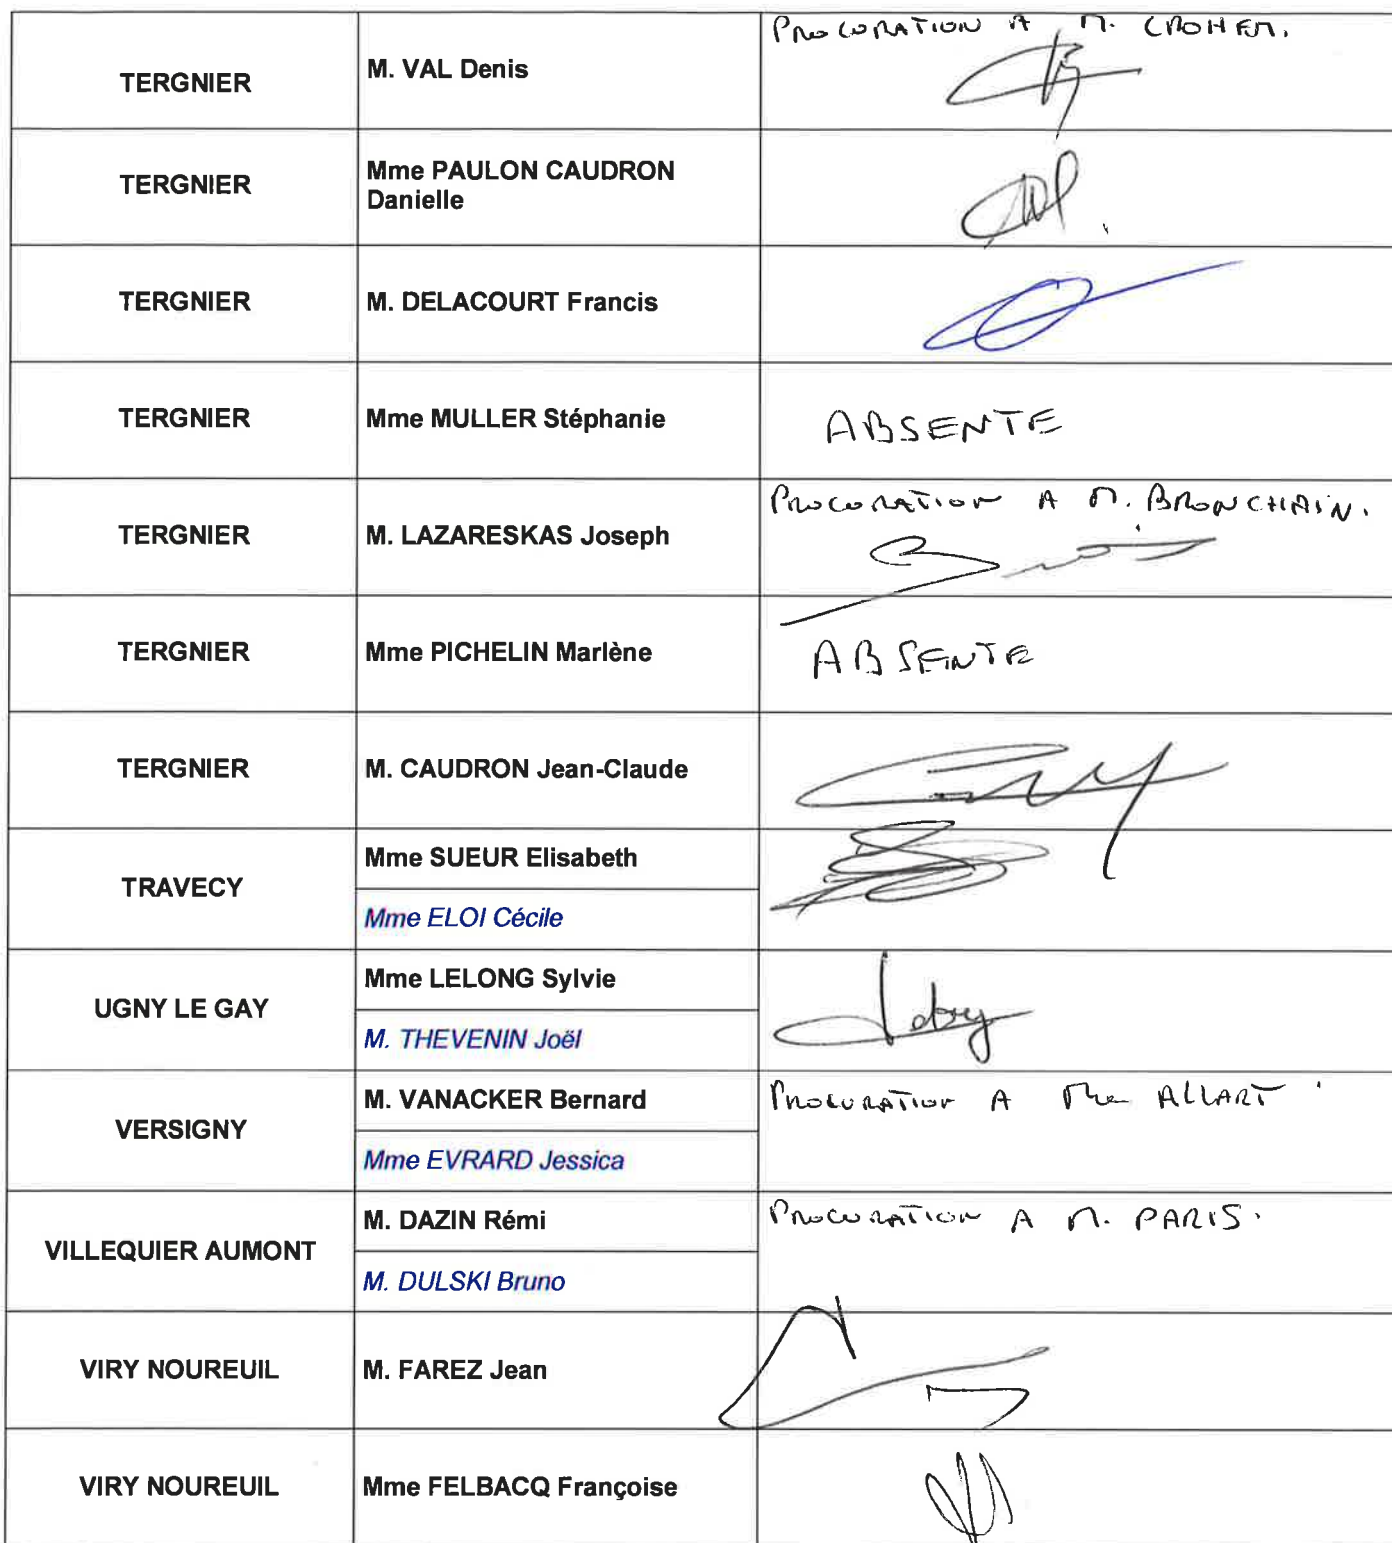 PROCURATION A M. CROHEM.
TERGNIER
M. VAL Denis
TERGNIER
Mme PAULON CAUDRON
Danielle
TERGNIER
M. DELACOURT Francis
TERGNIER
Mme MULLER Stéphanie
ABSENTE
TERGNIER
M. LAZARESKAS Joseph
PROCURATION A M. BRONCHAIN.
TERGNIER
Mme PICHELIN Marlène
ABSENTE
TERGNIER
M. CAUDRON Jean-Claude
TRAVECY
Mme SUEUR Elisabeth
Mme ELOI Cécile
UGNY LE GAY
Mme LELONG Sylvie
M. THEVENIN Joël
VERSIGNY
M. VANACKER Bernard
PROCURATION A Mme ALLART
Mme EVRARD Jessica
VILLEQUIER AUMONT
M. DAZIN Rémi
PROCURATION A M. PARIS.
M. DULSKI Bruno
VIRY NOUREUIL
M. FAREZ Jean
VIRY NOUREUIL
Mme FELBACQ Françoise